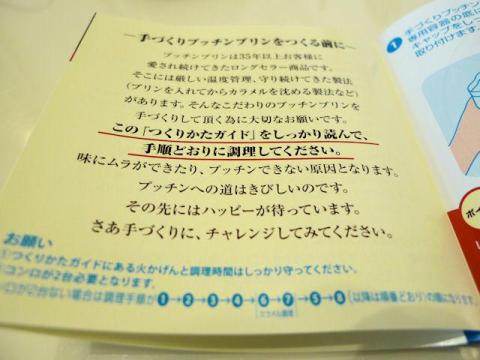 ―手づくりプッチンプリンをつくる前に―
プッチンプリンは35年以上お客様に
愛され続けてきたロングセラー商品です。
そこには厳しい温度管理、守り続けてきた製法
(プリンを入れてからカラメルを沈める製法など)
があります。そんなこだわりのプッチンプリンを
手づくりして頂く為に大切なお願いです。
この「つくりかたガイド」をしっかり読んで、
手順どおりに調理してください。
味にムラができたり、プッチンできない原因となります。
プッチンへの道はきびしいのです。
その先にはハッピーが待っています。
さあ手づくりに、チャレンジしてみてください。
お願い
つくりかたガイドにある火かげんと調理時間はしっかり守ってください。
コンロが2台必要となります。
コンロが2台ない場合は調理手順が①→②→③→④→⑥→⑦→⑤→⑧(以降は順番どおり)の順になります。
カラメル調理
①
手づくりプッチン
専用容器の底に
キャップをしっ
取り付けます。
ポイ